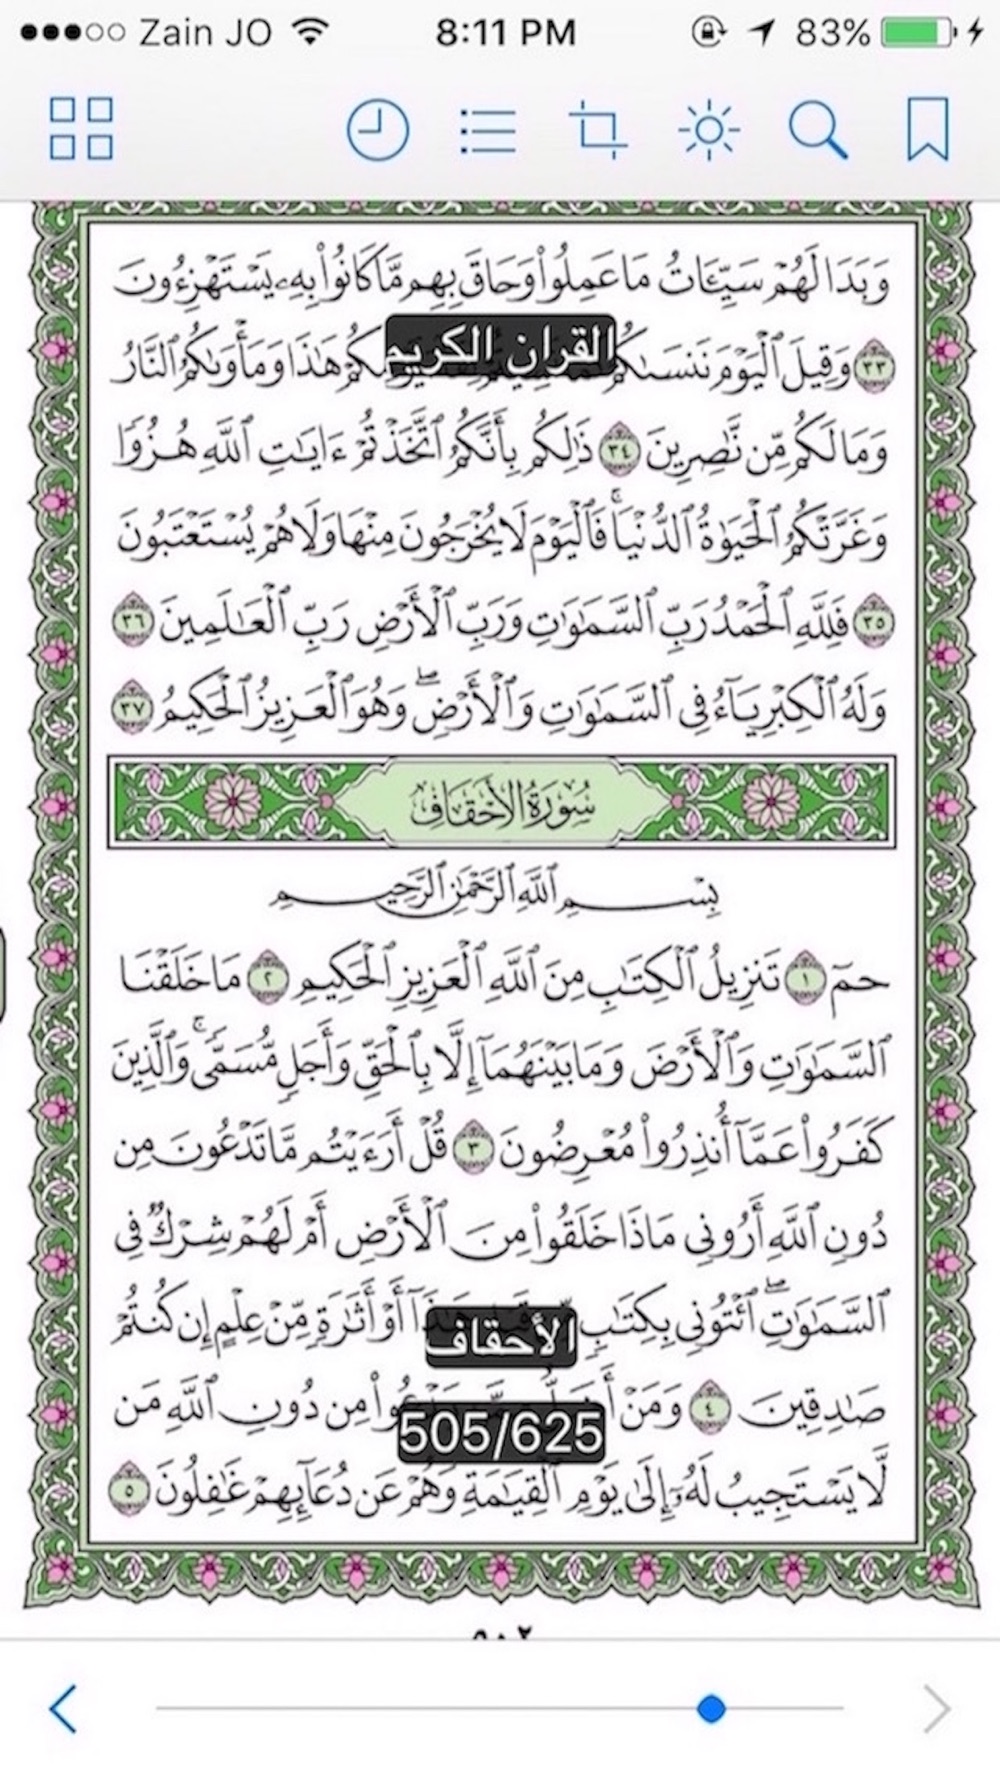 Zain JO 8:11 PM 83%
وَبَدَا لَهُمْ سَيِّـَٔاتُ مَا عَمِلُوا۟ وَحَاقَ بِهِم مَّا كَانُوا۟ بِهِۦ يَسْتَهْزِءُونَ
القران الكريم
٣٣ وَقِيلَ ٱلْيَوْمَ نَنسَىٰكُمْ هَٰذَا وَمَأْوَىٰكُمُ ٱلنَّارُ
وَمَا لَكُم مِّن نَّٰصِرِينَ ٣٤ ذَٰلِكُم بِأَنَّكُمُ ٱتَّخَذْتُمْ ءَايَٰتِ ٱللَّهِ هُزُوًا
وَغَرَّتْكُمُ ٱلْحَيَوٰةُ ٱلدُّنْيَا ۚ فَٱلْيَوْمَ لَا يُخْرَجُونَ مِنْهَا وَلَا هُمْ يُسْتَعْتَبُونَ
٣٥ فَلِلَّهِ ٱلْحَمْدُ رَبِّ ٱلسَّمَٰوَٰتِ وَرَبِّ ٱلْأَرْضِ رَبِّ ٱلْعَٰلَمِينَ ٣٦
وَلَهُ ٱلْكِبْرِيَآءُ فِى ٱلسَّمَٰوَٰتِ وَٱلْأَرْضِ ۖ وَهُوَ ٱلْعَزِيزُ ٱلْحَكِيمُ ٣٧
سُورَةُ الأَحْقَافِ
بِسْمِ ٱللَّهِ ٱلرَّحْمَٰنِ ٱلرَّحِيمِ
حمٓ ١ تَنزِيلُ ٱلْكِتَٰبِ مِنَ ٱللَّهِ ٱلْعَزِيزِ ٱلْحَكِيمِ ٢ مَا خَلَقْنَا
ٱلسَّمَٰوَٰتِ وَٱلْأَرْضَ وَمَا بَيْنَهُمَآ إِلَّا بِٱلْحَقِّ وَأَجَلٍ مُّسَمًّى ۚ وَٱلَّذِينَ
كَفَرُوا۟ عَمَّآ أُنذِرُوا۟ مُعْرِضُونَ ٣ قُلْ أَرَءَيْتُم مَّا تَدْعُونَ مِن
دُونِ ٱللَّهِ أَرُونِى مَاذَا خَلَقُوا۟ مِنَ ٱلْأَرْضِ أَمْ لَهُمْ شِرْكٌ فِى
ٱلسَّمَٰوَٰتِ ۖ ٱئْتُونِى بِكِتَٰبٍ هَٰذَآ أَوْ أَثَٰرَةٍ مِّنْ عِلْمٍ إِن كُنتُمْ
الأحقاف
صَٰدِقِينَ ٤ وَمَنْ مِن دُونِ ٱللَّهِ مَن
505/625
لَّا يَسْتَجِيبُ لَهُۥٓ إِلَىٰ يَوْمِ ٱلْقِيَٰمَةِ وَهُمْ عَن دُعَآئِهِمْ غَٰفِلُونَ ٥
٥٠٢